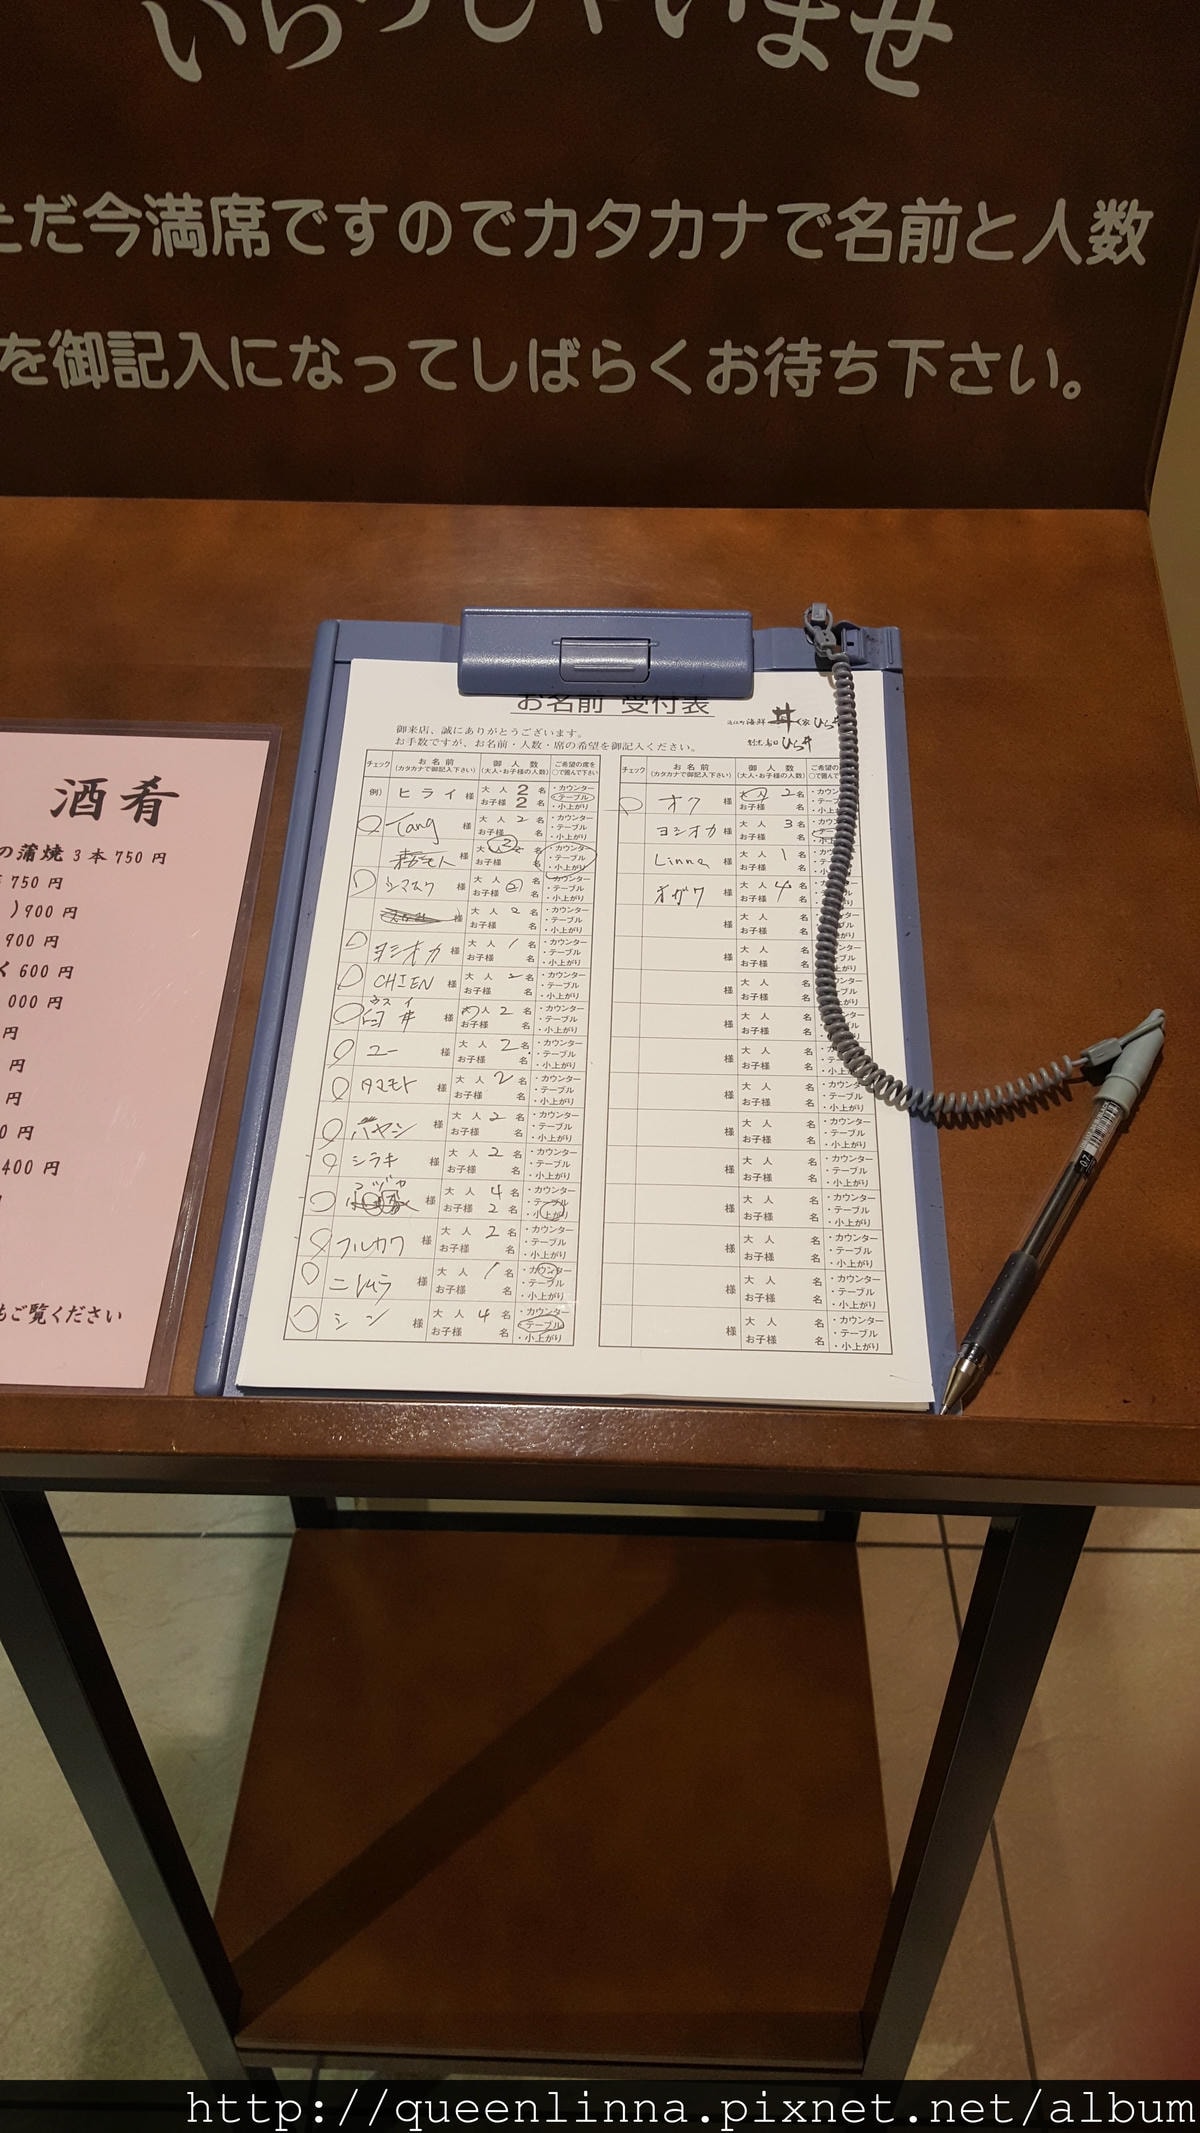 いらっしゃいませ
ただ今満席ですのでカタカナで名前と人数
を御記入になってしばらくお待ち下さい。
酒肴
の蒲焼 3本 750円
750円
)900円
900円
く 600円
000円
円
円
円
0円
400円
もご覧ください
お名前 受付表
近江町 海鮮 丼家 ひら井
御来店、誠にありがとうございます。
お手数ですが、お名前・人数・席の希望を御記入ください。
ひら井
チェック お名前 (カタカナで御記入下さい) 御人数 (大人・お子様の人数) ご希望の席を○で囲んで下さい
例) ヒライ 様 大人 2 名 お子様 2 名 ・カウンター ・テーブル ・小上がり
Tang 様 大人 2 名 お子様 名 ・カウンター ・テーブル ・小上がり
様 大人 お子様 名 ・カウンター ・テーブル ・小上がり
シマスケ 様 大人 名 お子様 ② 名 ・カウンター ・テーブル ・小上がり
様 大人 2 名 お子様 名 ・カウンター ・テーブル ・小上がり
ヨシオカ 様 大人 1 名 お子様 名 ・カウンター ・テーブル ・小上がり
CHIEN 様 大人 2 名 お子様 名 ・カウンター ・テーブル ・小上がり
ウスイ
臼井 様 大人 2 名 お子様 名 ・カウンター ・テーブル ・小上がり
ユー 様 大人 2 名 お子様 名 ・カウンター ・テーブル ・小上がり
タマモト 様 大人 2 名 お子様 名 ・カウンター ・テーブル ・小上がり
ハヤシ 様 大人 2 名 お子様 名 ・カウンター ・テーブル ・小上がり
シラキ 様 大人 2 名 お子様 名 ・カウンター ・テーブル ・小上がり
様 大人 4 名 お子様 2 名 ・カウンター ・テーブル ・小上がり
フルカワ 様 大人 2 名 お子様 名 ・カウンター ・テーブル ・小上がり
ニシムラ 様 大人 1 名 お子様 名 ・カウンター ・テーブル ・小上がり
シン 様 大人 4 名 お子様 名 ・カウンター ・テーブル ・小上がり
チェック お名前 (カタカナで御記入下さい) 御人数 (大人・お子様の人数) ご希望の席を ○で囲んで
オク 様 大人 2 名 お子様 名 ・カウン ・テーブ ・小上が
ヨシオカ 様 大人 3 名 お子様 名 ・カウン
Linna 様 大人 1 名 お子様 名
オガワ 様 大人 4 名 お子様 名
様 大人 名 お子様 名
様 大人 名 お子様 名
様 大人 名 お子様 名
様 大人 名 お子様 名
様 大人 名 お子様 名
様 大人 名 お子様 名 ・カウンター ・テーブル ・小上がり
様 大人 名 お子様 名 ・カウンター ・テーブル ・小上がり
様 大人 名 お子様 名 ・カウンター ・テーブル ・小上がり
様 大人 名 お子様 名 ・カウンター ・テーブル ・小上がり
様 大人 名 お子様 名 ・カウンター ・テーブル ・小上がり
様 大人 名 お子様 名 ・カウンター ・テーブル ・小上がり
様 大人 名 お子様 名 ・カウンター ・テーブル ・小上がり
07
http://queenlinna.pixnet.net/album